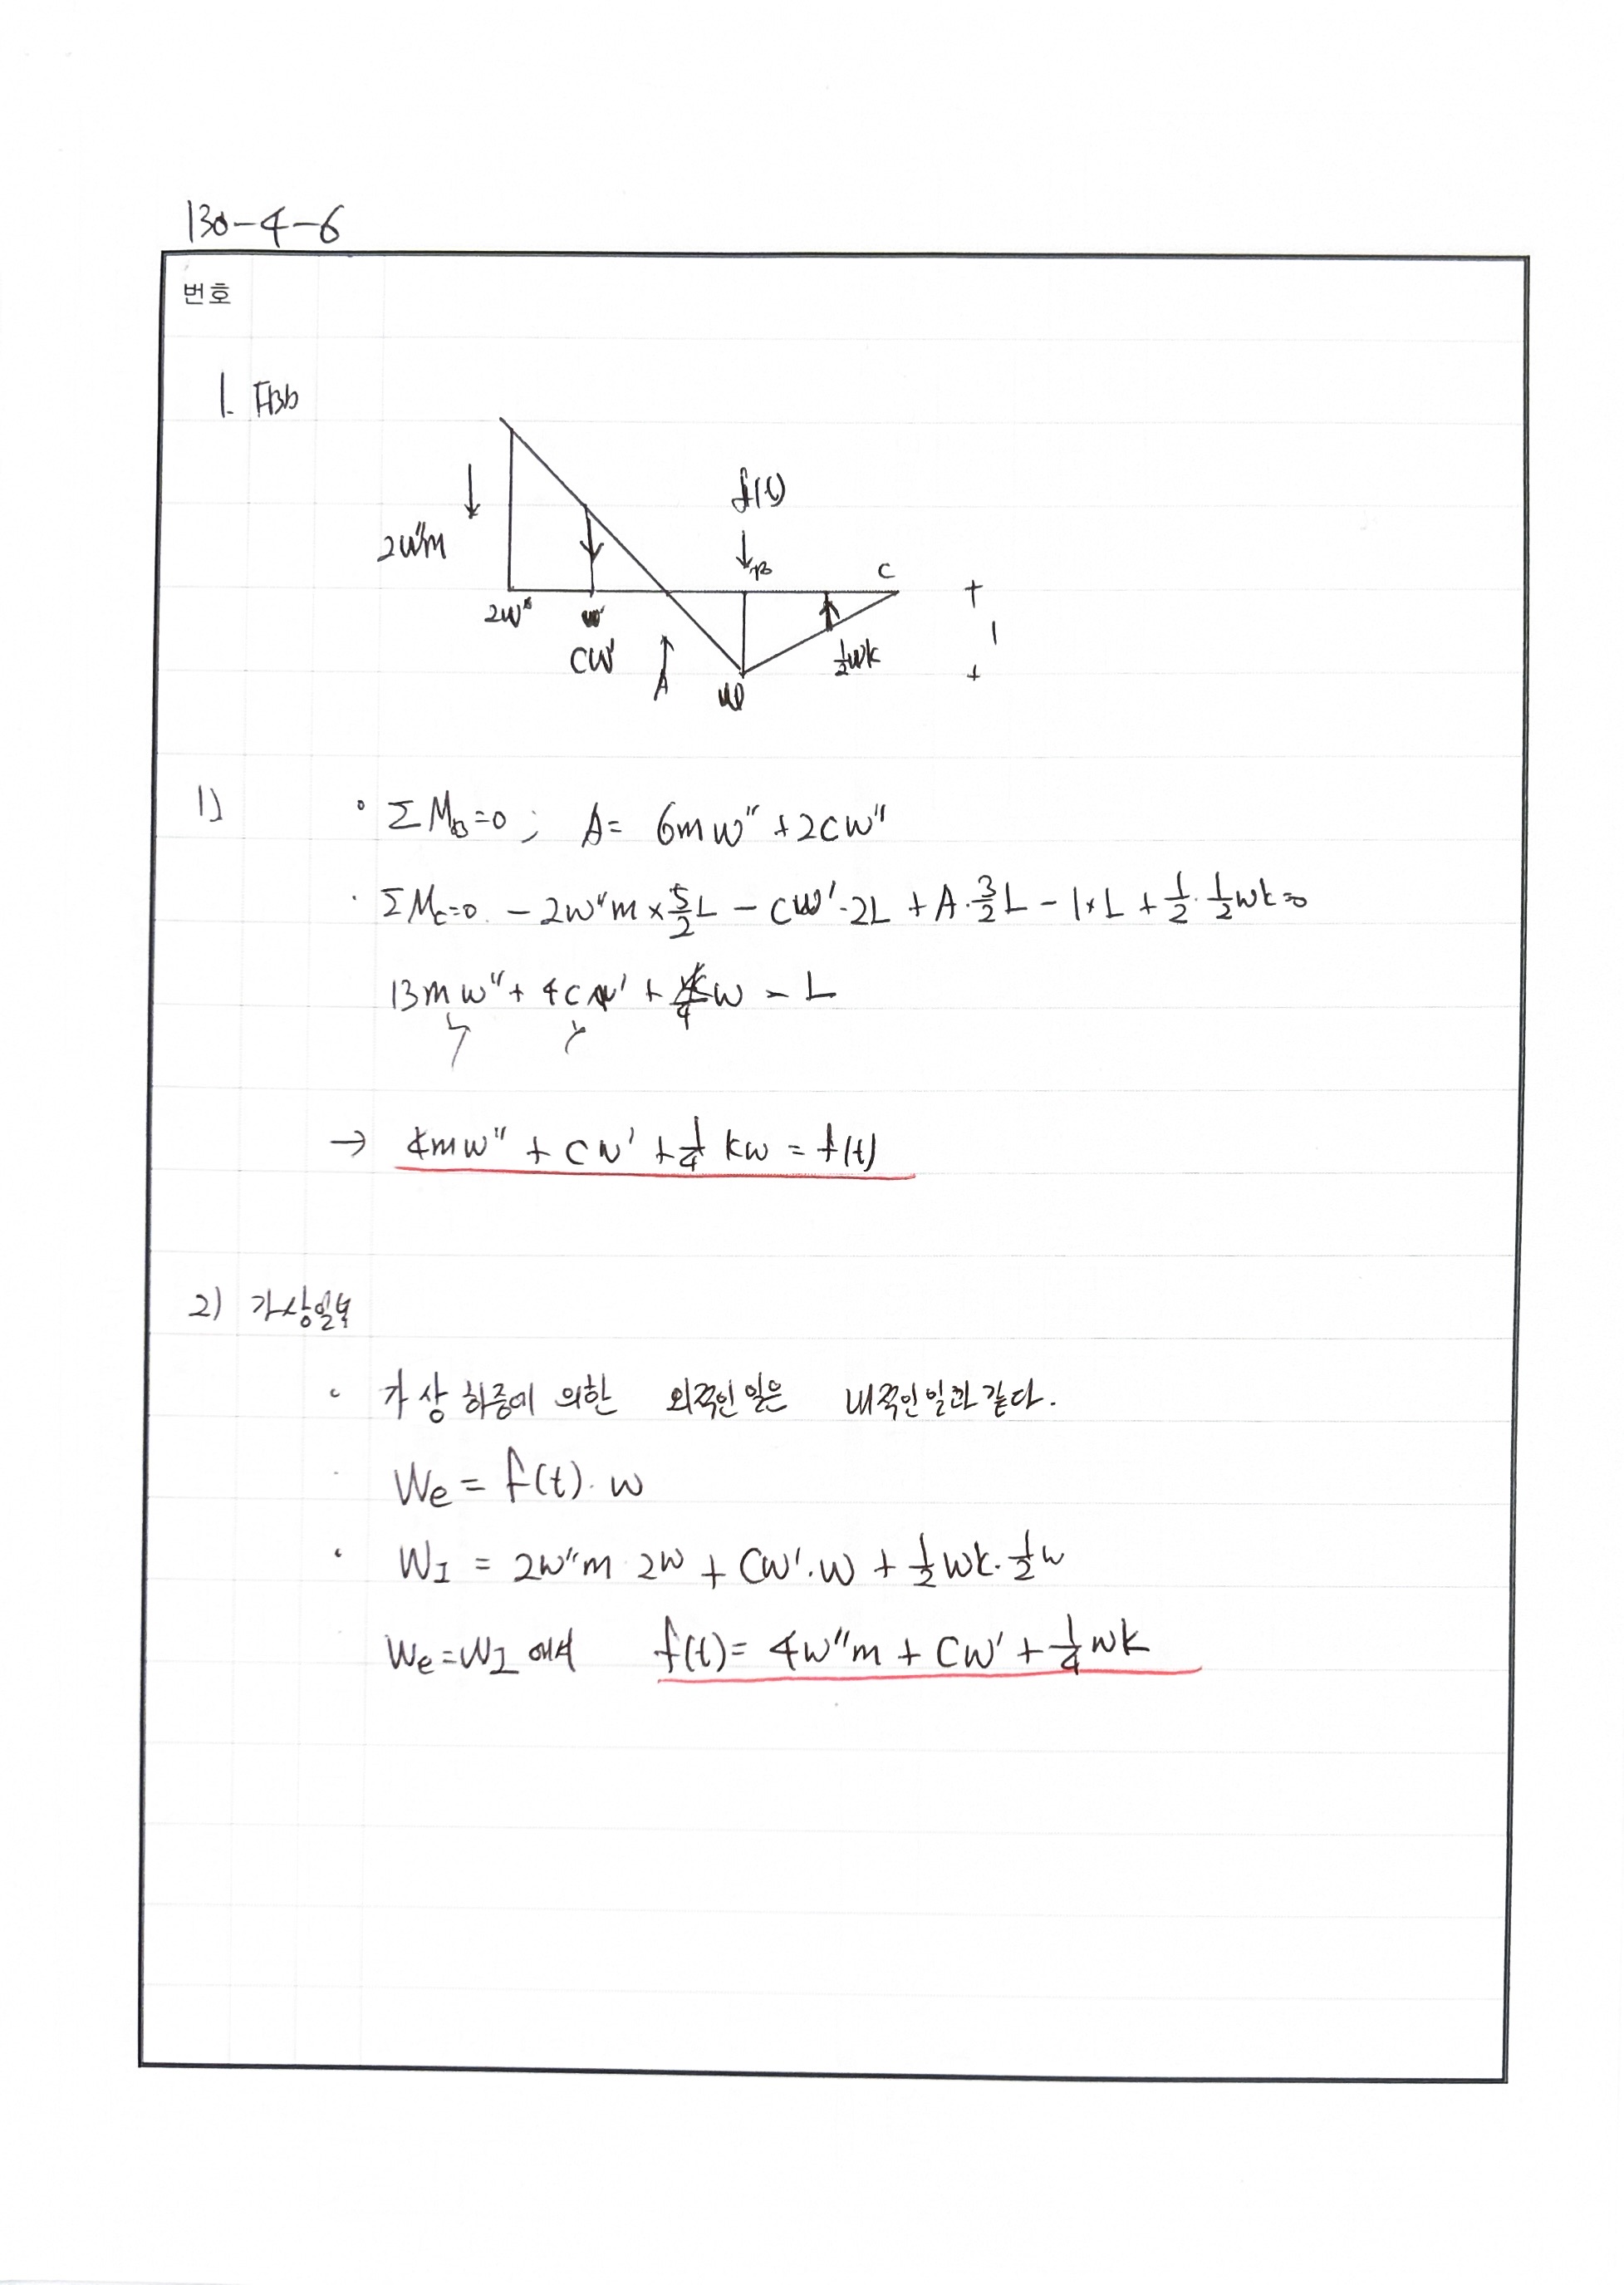 130-4-6
번호
1. FBD
f(t)
2w"m
B
C
2w"
w'
Cw'
A
w
½wk
1
1)
• ΣM_B=0 ; A= 6mw" + 2cw"
· ΣM_C=0. - 2w"m × 5/2 L - cw'·2L + A·3/2 L - 1×L + 1/2 · 1/2 wk=0
13mw" + 4cw' + k/4 w - L
→ 4mw" + cw' + 1/4 kw = f(t)
2) 가상일법
• 가상 하중에 의한 외적인 일은 내적인 일과 같다.
· We = f(t) · w
• W_I = 2w"m · 2w + Cw'·w + 1/2 wk · 1/2 w
We = W_I 에서 f(t) = 4w"m + Cw' + 1/4 wk